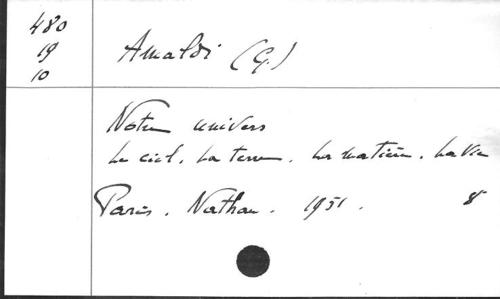 480
19
10
Amaldi (G.)
Notre univers
Le ciel. La terre. La matière. La vie
Paris. Nathan. 1951. 8°